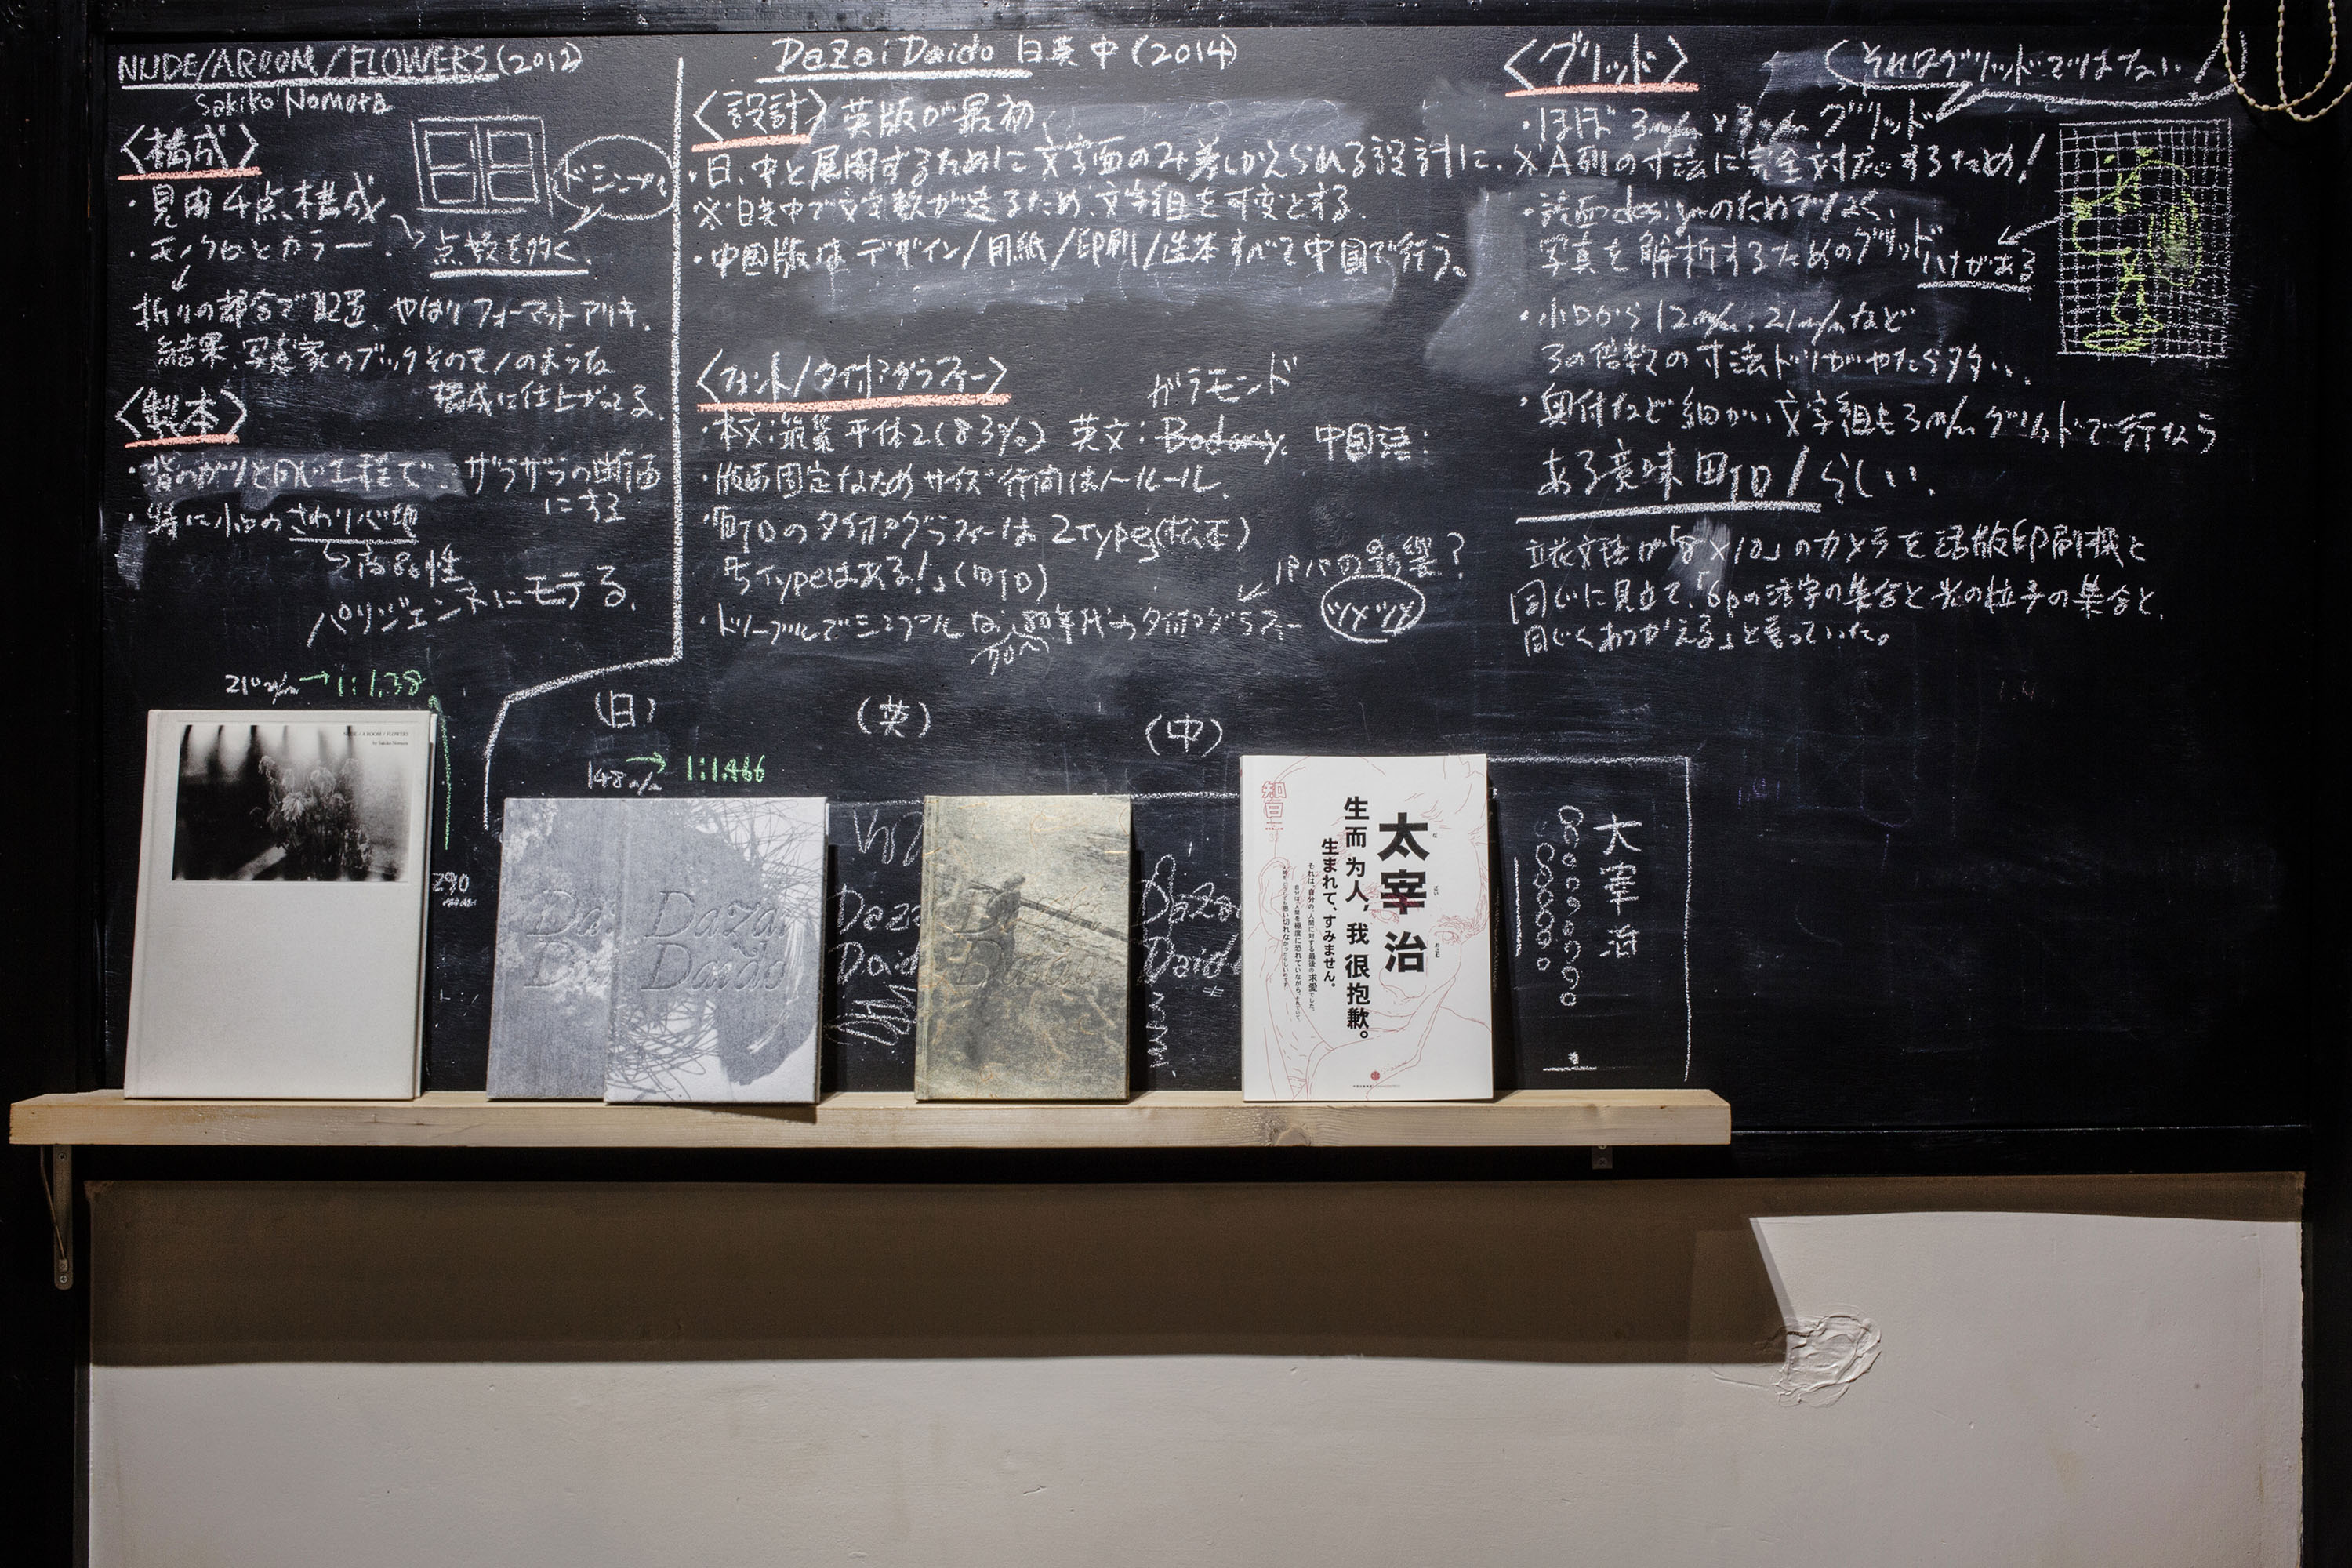 NUDE/A ROOM/FLOWERS (2012)
Sakiko Nomura
〈構成〉
・見開4点構成
・モノクロとカラー
ドシンプル
点数を多く
折りの都合で配置、やはりフォーマットアリキ、
結果、写真家のブックそのモノのような
構成に仕上がってる。
〈製本〉
・背のガリと同じ工程で:ザラザラの断面
にする
・特に小口のさわり心地
高品性
パリジェンヌにモテる。
Dazai Daido 日英中 (2014)
〈設計〉英版が最初、
・日、中と展開するために文字面のみ差しかえられる設計に、
※日英中で文字数が違うため、文字組を可変とする。
・中国版はデザイン/用紙/印刷/造本すべて中国で行う。
〈フォント/タイポグラフィー〉
ガラモンド
・本文:筑紫 平体2(83%) 英文:Bodony. 中国語:
・版面固定なためサイズ行間はノールール、
・町口のタイポグラフィーは2type(松本)
5typeはある!」(町口)
パパの影響?
・ドノーマルでシンプルな、80年代のタイポグラフィー
70'
ツメツメ
〈グリッド〉
(それはグリッドではない!)
・ほぼ3m/m×3m/mグリッド
×A列の寸法に完全対応するため!
・誌面designのためでなく、
写真を解析するためのグリッド
ハナがある
・小口から12m/m、21m/mなど
3の倍数の寸法ドリがやたら多い、
・奥付など細かい文字組も3m/mグリッドで行なう
ある意味町口/らしい、
立花文穂が「8×10」のカメラを活版印刷機と
同じに見立て、「6pの活字の集合と光の粒子の集合と、
同じくあつかえる」と言っていた。
210m/m→1:1.38
290
m/m
(日)
148m/m→1:1.466
(英)
(中)
NUDE / A ROOM / FLOWERS
by Sakiko Nomura
Da
D
Dazai
Daido
Daza
Daid
Dazai
Daido
Dazai
Daido
知日
太宰治
生而为人,我很抱歉。
生まれて、すみません。
それは、自分の、人間に対する最後の求愛でした。
太宰治